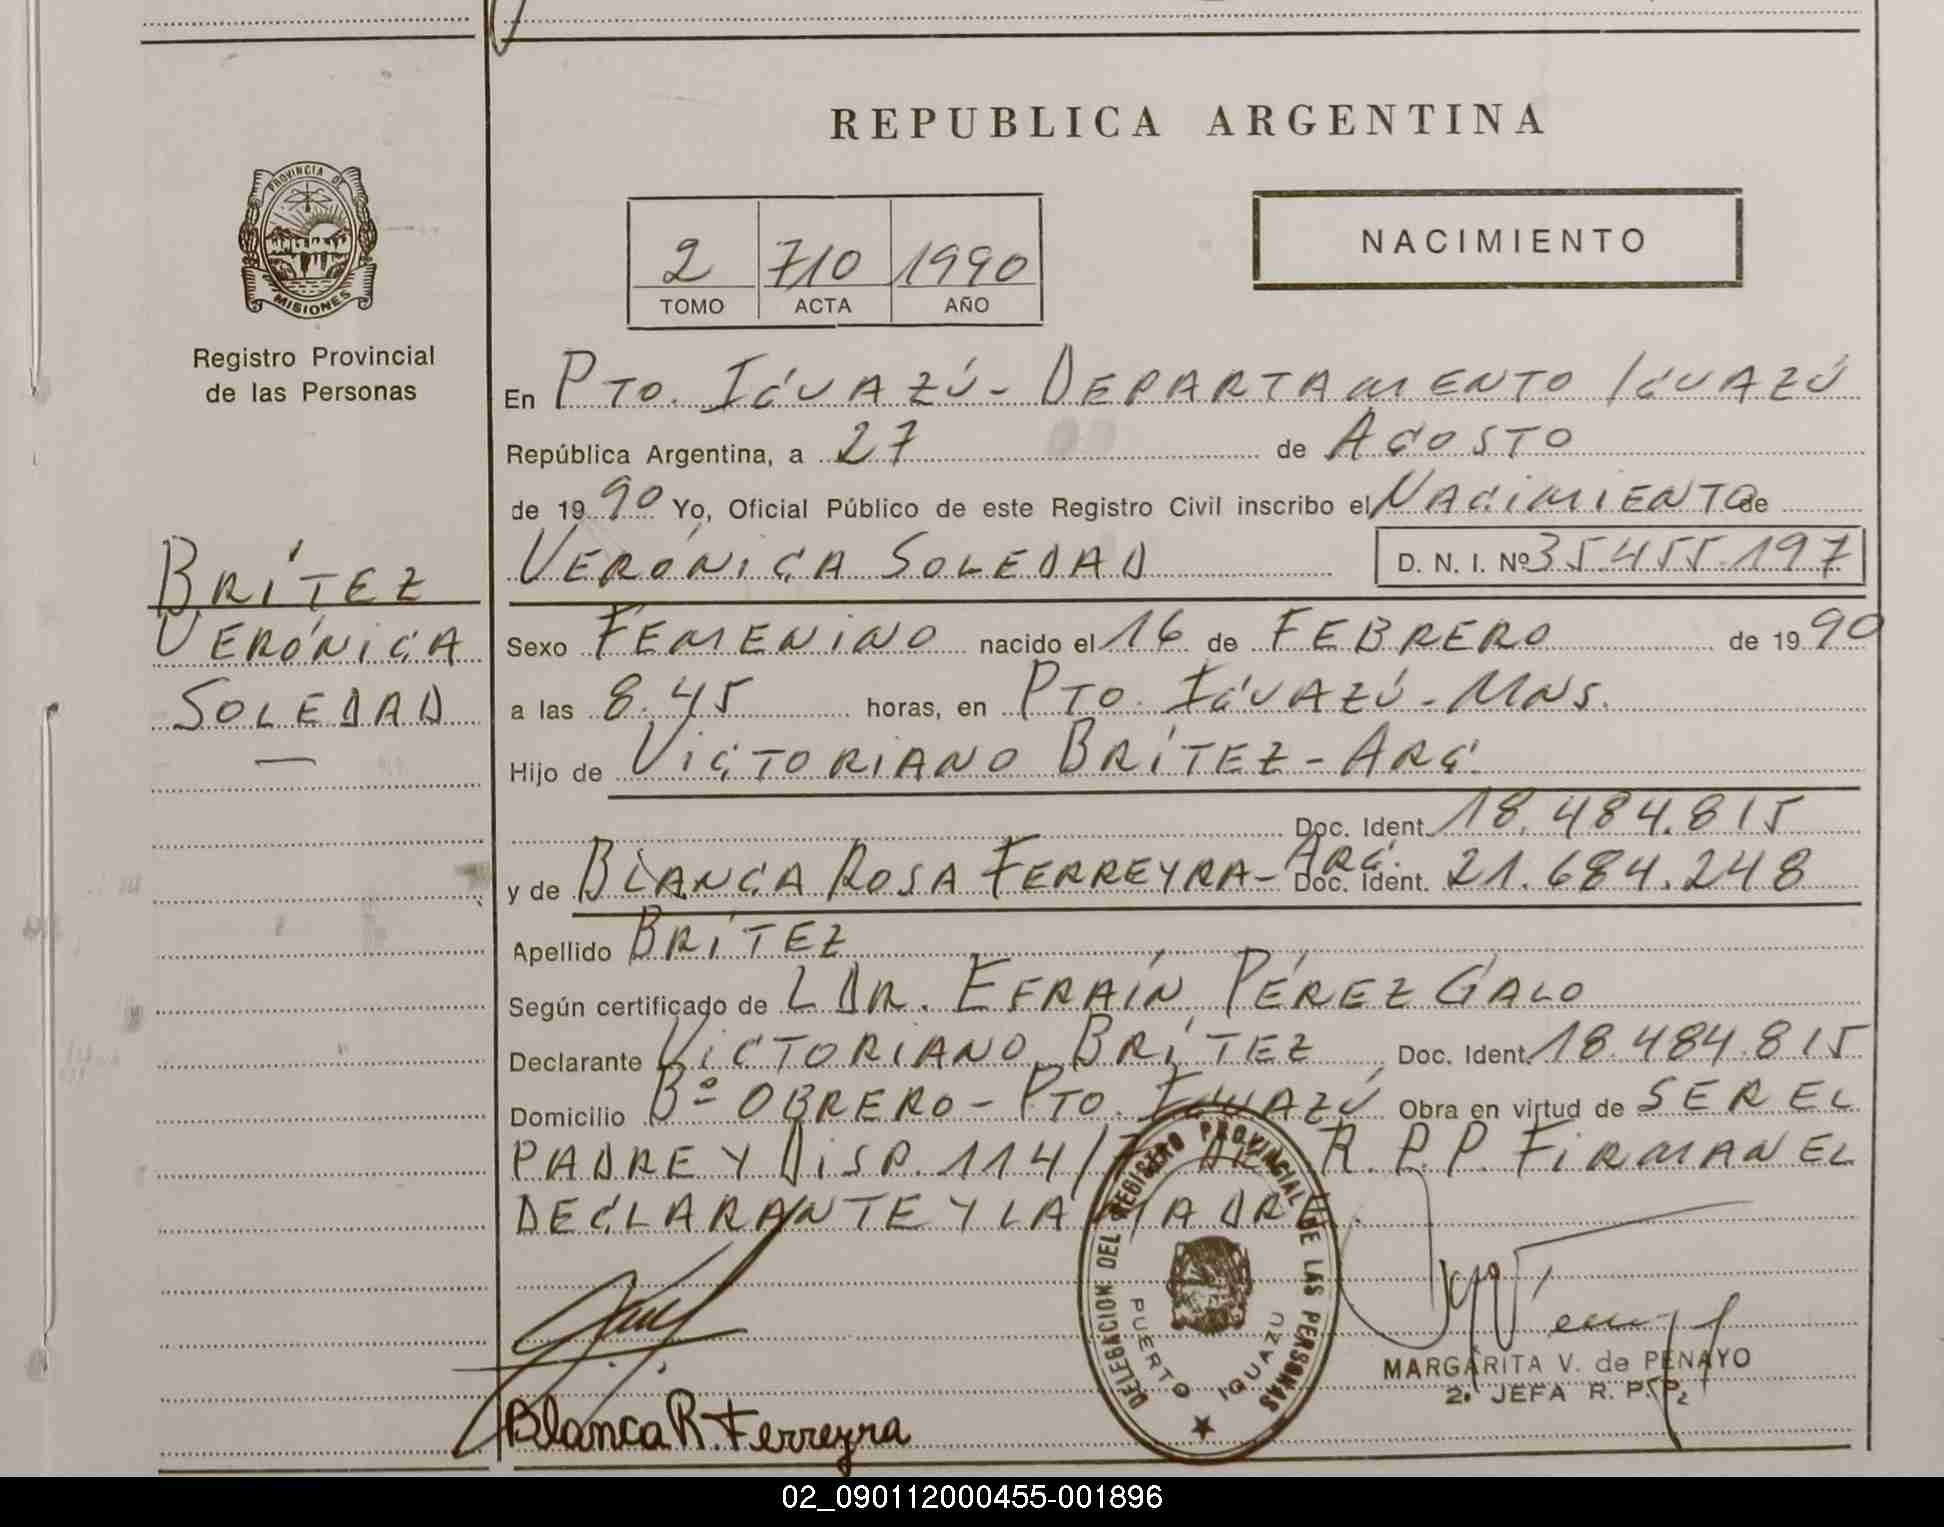 REPUBLICA ARGENTINA
PROVINCIA DE
MISIONES
Registro Provincial
de las Personas
2 710 1990
TOMO ACTA AÑO
NACIMIENTO
BRÍTEZ
VERÓNICA
SOLEDAD
En PTO. IGUAZÚ - DEPARTAMENTO IGUAZÚ
República Argentina, a 27 de AGOSTO
de 1990 Yo, Oficial Público de este Registro Civil inscribo el NACIMIENTO de
VERÓNICA SOLEDAD D. N. I. Nº 35.455.197
Sexo FEMENINO nacido el 16 de FEBRERO de 1990
a las 8.45 horas, en PTO. IGUAZÚ - MNS.
Hijo de VICTORIANO BRÍTEZ - ARG.
Doc. Ident. 18.484.815
y de BLANCA ROSA FERREYRA - ARG. Doc. Ident. 21.684.248
Apellido BRÍTEZ
Según certificado de L DR. EFRAÍN PÉREZ GALO
Declarante VICTORIANO BRÍTEZ Doc. Ident. 18.484.815
Domicilio Bº OBRERO - PTO. IGUAZÚ Obra en virtud de SER EL
PADRE Y DISP. 114/ R.P.P. FIRMAN EL
DECLARANTE Y LA MADRE.
DELEGACION DEL REGISTRO PROVINCIAL DE LAS PERSONAS
PUERTO IGUAZU
MARGARITA V. de PENAYO
2. JEFA R. P. P.
Blanca R. Ferreyra
02_090112000455-001896